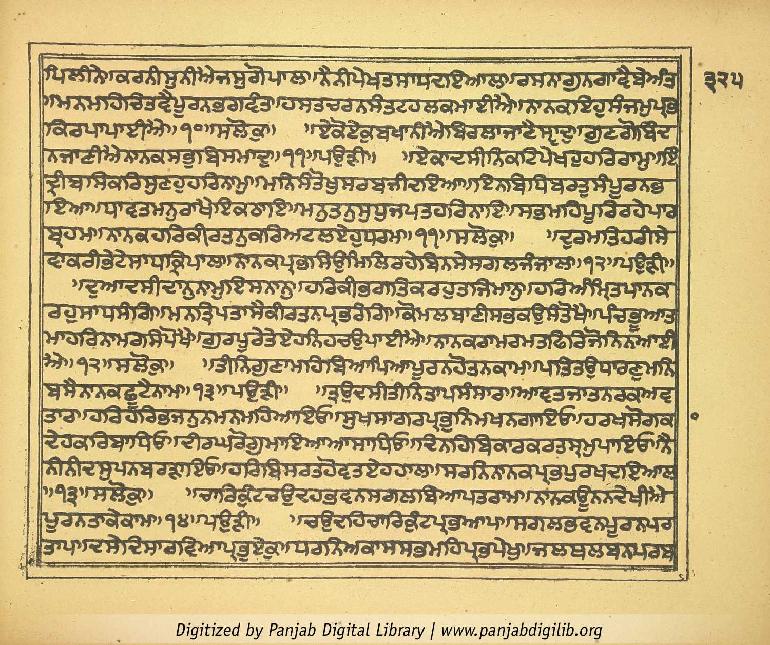 ਪਿਲੀਨੋ॥ਕਰਨੀਸੁਨੀਐਜਸੁਗੋਪਾਲ॥ਨੈਨੀਪੇਖਤਸਾਧਦਇਆਲ॥ਰਸਨਾਗੁਨਗਾਵੈਬੇਅੰਤ
॥ਮਨਮਹਿਚਿਤਵੈਪੂਰਨਭਗਵੰਤ॥ਹਸਤਚਰਨਸੰਤਟਹਲਕਮਾਈਐ॥ਨਾਨਕਇਹੁਸੰਜਮੁਪ੍ਰਭ
ਕਿਰਪਾਪਾਈਐ॥੧੦॥ਸਲੋਕੁ॥ ॥ਏਕੋਏਕੁਬਖਾਨੀਐਬਿਰਲਾਜਾਣੈਸ੍ਵਾਦੁ॥ਗੁਣਗੋਬਿੰਦ
ਨਜਾਣੀਐਨਾਨਕਸਭੁਬਿਸਮਾਦੁ॥੧੧॥ਪਉੜੀ॥ ॥ਏਕਾਦਸੀਨਿਕਟਿਪੇਖਹੁਹਰਿਰਾਮੁ॥ਇੰ
ਦ੍ਰੀਬਸਿਕਰਿਸੁਣਹੁਹਰਿਨਾਮੁ॥ਮਨਿਸੰਤੋਖੁਸਰਬਜੀਅਦਇਆ॥ਇਨਬਿਧਿਬਰਤੁਸੰਪੂਰਨਭ
ਇਆ॥ਧਾਵਤਮਨੁਰਾਖੈਇਕਠਾਇ॥ਮਨੁਤਨੁਸੁਧੁਜਪਤਹਰਿਨਾਇ॥ਸਭਮਹਿਪੂਰਿਰਹੇਪਾਰ
ਬ੍ਰਹਮ॥ਨਾਨਕਹਰਿਕੀਰਤਨੁਕਰਿਅਟਲਏਹੁਧਰਮ॥੧੧॥ਸਲੋਕੁ॥ ॥ਦੁਰਮਤਿਹਰੀਸੇ
ਵਾਕਰੀਭੇਟੇਸਾਧਕ੍ਰਿਪਾਲ॥ਨਾਨਕਪ੍ਰਭਸਿਉਮਿਲਿਰਹੇਬਿਨਸੇਸਗਲਜੰਜਾਲ॥੧੨॥ਪਉੜੀ॥
॥ਦੁਆਦਸੀਦਾਨੁਨਾਮੁਇਸਨਾਨੁ॥ਹਰਿਕੀਭਗਤਿਕਰਹੁਤਜਿਮਾਨੁ॥ਹਰਿਅੰਮ੍ਰਿਤਪਾਨਕ
ਰਹੁਸਾਧਸੰਗਿ॥ਮਨਤ੍ਰਿਪਤਾਸੈਕੀਰਤਨਪ੍ਰਭਰੰਗਿ॥ਕੋਮਲਬਾਣੀਸਭਕਉਸੰਤੋਖੈ॥ਪੰਚਭੂਆਤ
ਮਾਹਰਿਨਾਮਰਸਿਪੋਖੈ॥ਗੁਰਪੂਰੇਤੇਏਹਨਿਹਚਉਪਾਈਐ॥ਨਾਨਕਰਾਮਰਮਤਫਿਰਿਜੋਨਿਨਆਈ
ਐ॥੧੨॥ਸਲੋਕੁ॥ ॥ਤੀਨਿਗੁਣਾਮਹਿਬਿਆਪਿਆਪੂਰਨਹੋਤਨਕਾਮ॥ਪਤਿਤਉਧਾਰਣੁਮਨਿ
ਬਸੈਨਾਨਕਛੂਟੈਨਾਮ॥੧੩॥ਪਉੜੀ॥ ॥ਤ੍ਰਉਦਸੀਤੀਨਿਤਾਪਸੰਸਾਰ॥ਆਵਤਜਾਤਨਰਕਅਵ
ਤਾਰ॥ਹਰਿਹਰਿਭਜਨੁਨਮਨਮਹਿਆਇਓ॥ਸੁਖਸਾਗਰਪ੍ਰਭੁਨਿਮਖਨਗਾਇਓ॥ਹਰਖਸੋਗਕ
ਦੇਹਕਰਿਬਾਧਿਓ॥ਦੀਰਘਰੋਗੁਮਾਇਆਆਸਾਧਿਓ॥ਦਿਨਹਿਬਿਕਾਰਕਰਤਸ੍ਰਮੁਪਾਇਓ॥ਨੈ
ਨੀਨੀਦਸੁਪਨਬਰੜਾਇਓ॥ਹਰਿਬਿਸਰਤਹੋਵਤਏਹਹਾਲ॥ਸਰਨਿਨਾਨਕਪ੍ਰਭਪੁਰਖਦਇਆਲ
॥੧੩॥ਸਲੋਕੁ॥ ॥ਚਾਰਿਕੁੰਟਚਉਦਹਭਵਨਸਗਲਬਿਆਪਤਰਾਮ॥ਨਾਨਕਊਨਨਦੇਖੀਐ
ਪੂਰਨਤਾਕੇਕਾਮ॥੧੪॥ਪਉੜੀ॥ ॥ਚਉਦਹਿਚਾਰਿਕੁੰਟਪ੍ਰਭਆਪ॥ਸਗਲਭਵਨਪੂਰਨਪਰ
ਤਾਪ॥ਦਸੇਦਿਸਾਰਵਿਆਪ੍ਰਭੁਏਕੁ॥ਧਰਨਿਅਕਾਸਸਭਮਹਿਪ੍ਰਭਪੇਖੁ॥ਜਲਥਲਬਨਪਰਬ
੩੨੫
Digitized by Panjab Digital Library | www.panjabdigilib.org